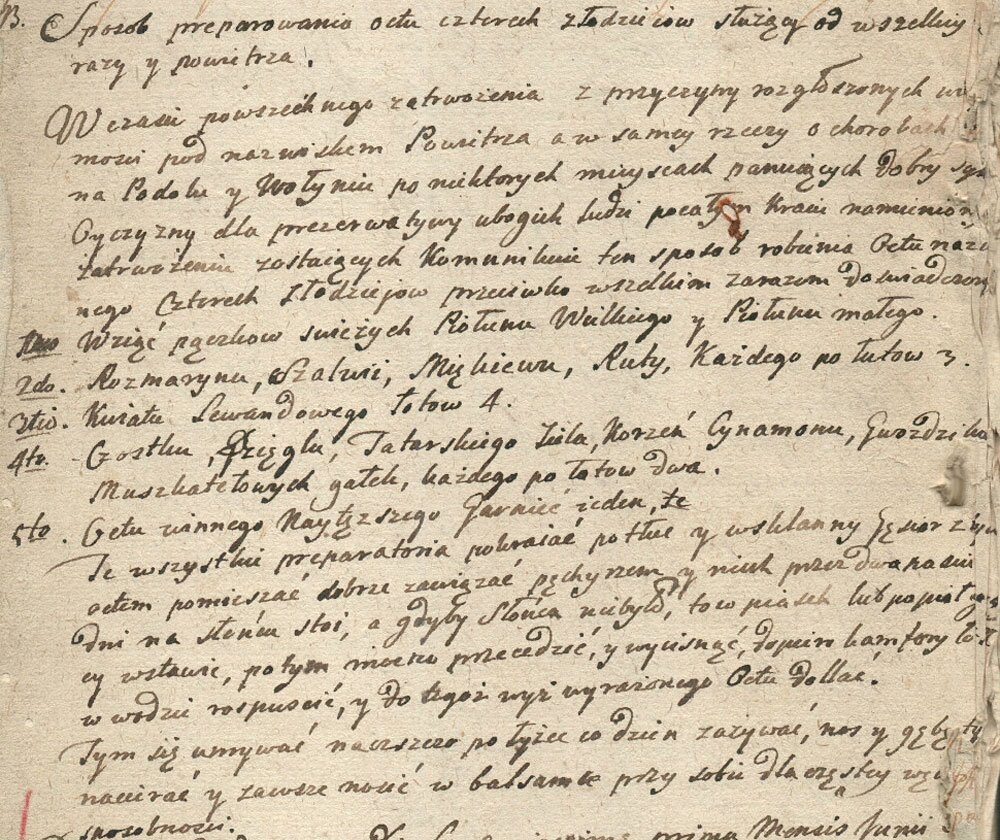 B. Sposob preparowania octu czterech złodzieiow służący od wszelkiey
razy y powietrza.
W czasie powszechnego zatrwożenia z przyczyny rozgłoszonych
mości pod nazwiskiem Powietrza a w samey rzeczy o chorobach
na Podolu y Wołyniu po niektorych mieyscach panuiących dobry
Oyczyzny dla prezerwatywy ubogich ludzi po całym Kraiu namienion
zatrwożeniu zostaiących Komunikuie ten sposob robienia Octu nazw
nego Czterech Złodziejow przeciwko wszelkim zarazom doswiadczon
1mo Wziąć pączkow swieżych Piołunu Wielkiego y Piołunu małego.
2do. Rozmarynu, Szalwii, Miętkiewu, Ruty, Każdego po łutow 3.
3tio. Kwiatu Lewandowego łotow 4.
4to. Czostku, Dzięglu, Tatarskiego Ziela, Korzeń Cynamonu, Gwozdzikow
Muszkatełowych gałek, każdego po łotow dwa.
5to. Octu winnego Naytęższego Garniec ieden, te
Te wszystkie preparatoria pokraiać potłuc y w szklanny Gąsior z tym
octem pomieszać dobrze zawiązać pęchyrzem y niech przez dwanascie
dni na słońcu stoi, a gdyby Słońca niebyło, to w piasek lub popioł
cy wstawić, potym mocno przecedzić, y wycisnąć, dopiero kamfory łot
w wodzie rospuscić, y do tegoż wyż wyrażonego Octu dollać.
Tym się umywać naczszczo po łyżce co dzien zażywać, nos y gębę
nacierać y zawsze nosić w balsamce przy sobie dla częstey
sposobności.
prima Mensis Junii